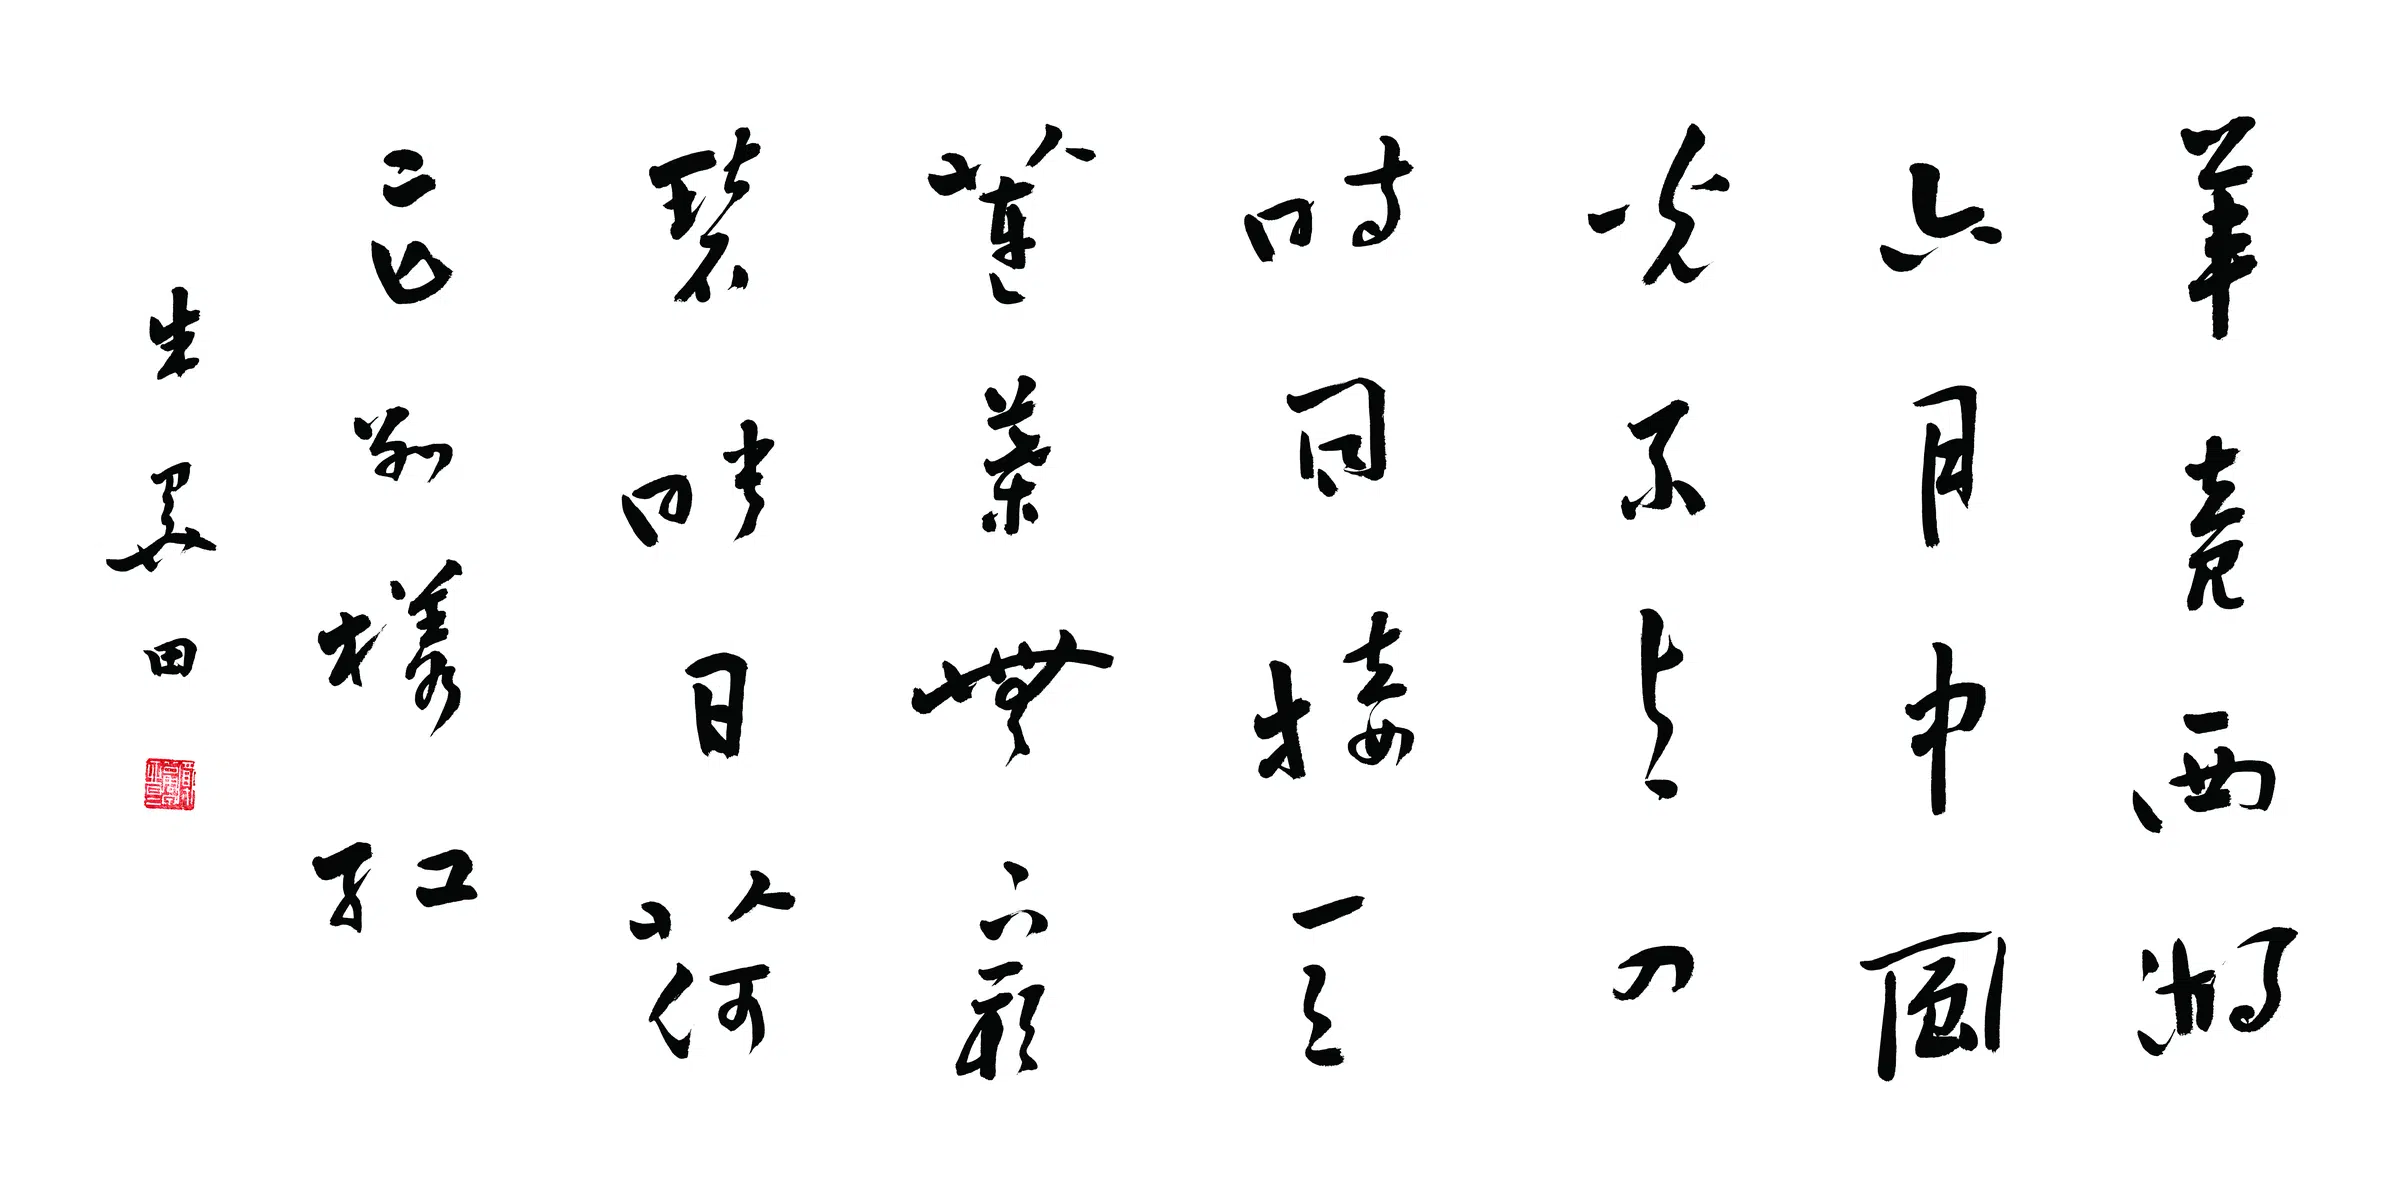 畢竟西湖
六月中風
光不与四
時同接天
蓮葉無窮
碧映日荷
花別樣紅
朱 田